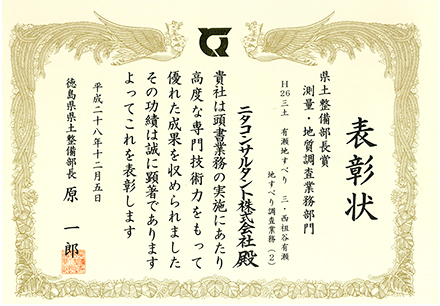 表彰状
県土整備部長賞
測量・地質調査業務部門
H26三土 有瀬地すべり 三・西祖谷有瀬
地すべり調査業務(2)
ニタコンサルタント株式会社殿
貴社は頭書業務の実施にあたり
高度な専門技術力をもって
優れた成果を収められました
その功績は誠に顕著であります
よってこれを表彰します
平成二十八年十二月五日
徳島県県土整備部長 原 一郎